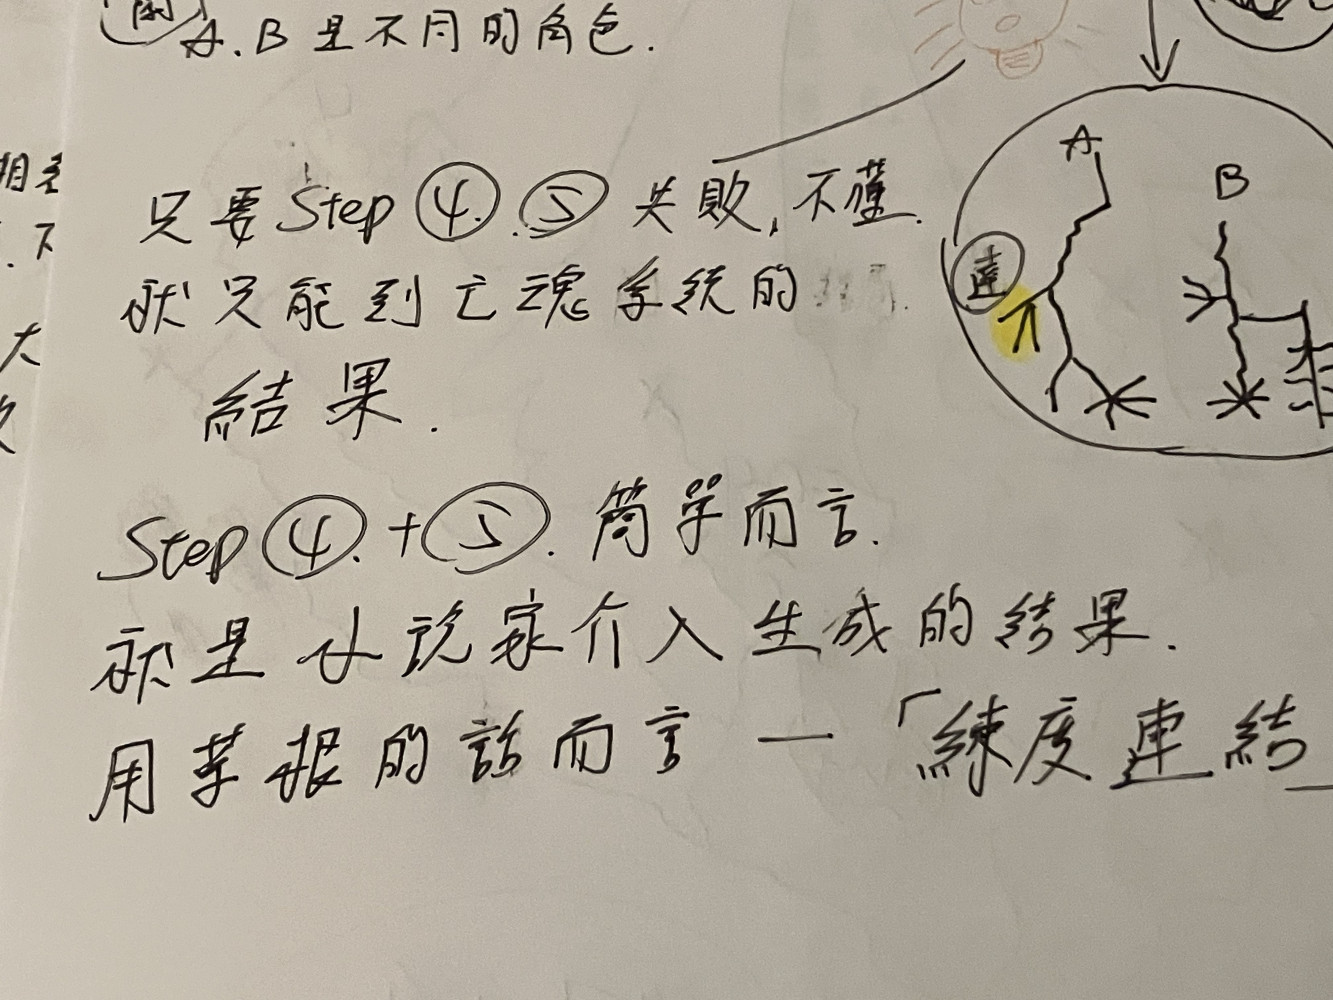 A.B是不同的角色.
只要Step④.⑤失敗,不懂.
就只能到亡魂系統的
結果.
Step④.+⑤.簡單而言.
就是小說家介入生成的結果.
用草根的話而言—「練度連結
A
B
連